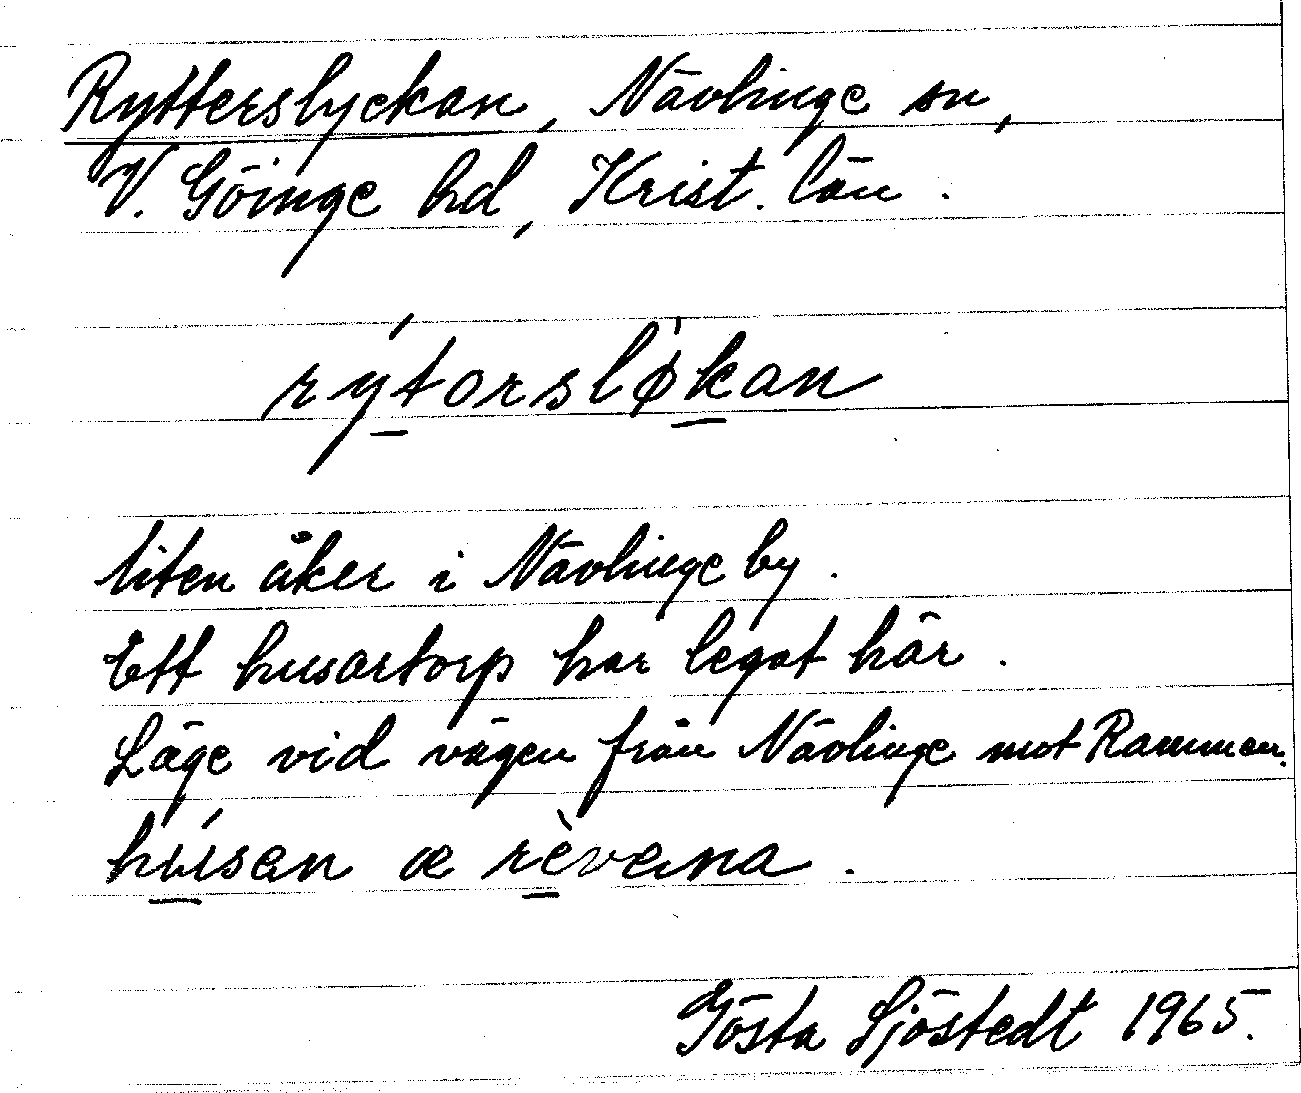 Rytterslyckan, Nävlinge sn,
V. Göinge hd, Krist. län.
rýtorslø̀kan
liten åker i Nävlinge by.
Ett husartorp har legat här.
Läge vid vägen från Nävlinge mot Rammen.
húsen æ rèvena.
Gösta Sjöstedt 1965.